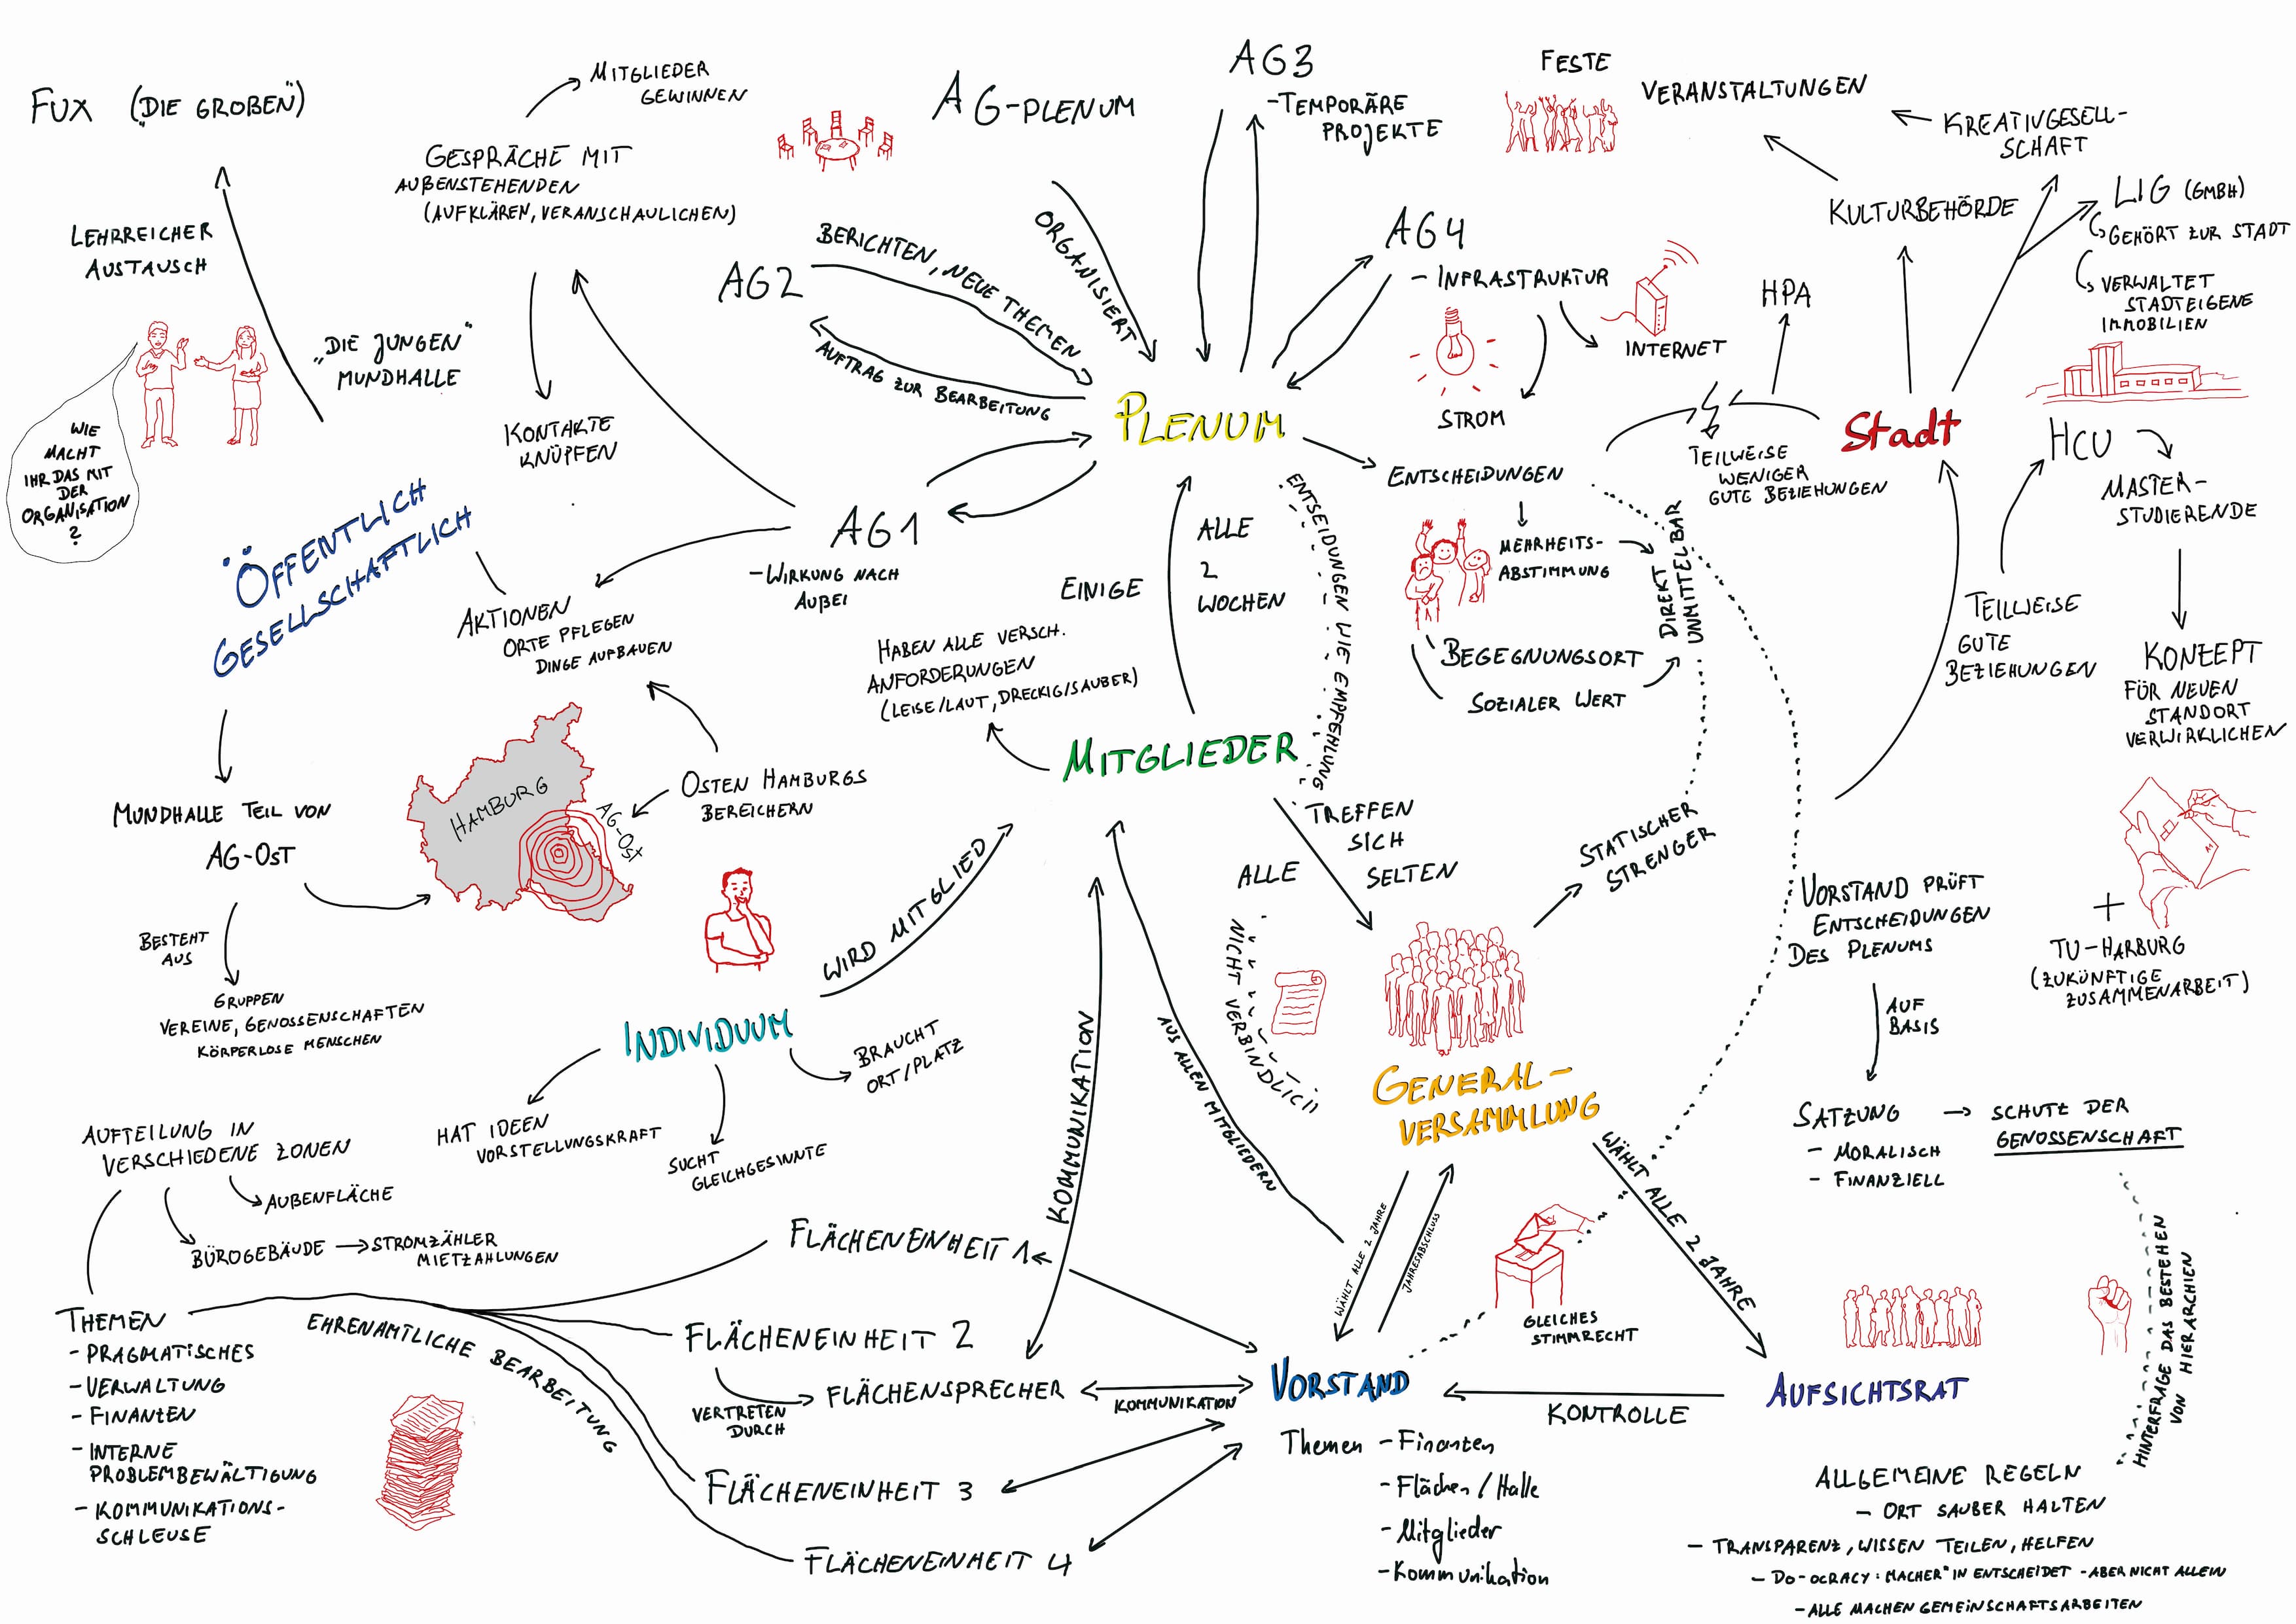 FUX („DIE GROßEN")
LEHRREICHER
AUSTAUSCH
„DIE JUNGEN"
MUNDHALLE
WIE
MACHT
IHR DAS MIT
DER
ORGANISATION
?
MITGLIEDER
GEWINNEN
GESPRÄCHE MIT
AUßENSTEHENDEN
(AUFKLÄREN, VERANSCHAULICHEN)
KONTAKTE
KNÜPFEN
AG-PLENUM
ORGANISIERT
AG2
BERICHTEN, NEUE THEMEN
AUFTRAG ZUR BEARBEITUNG
AG3
-TEMPORÄRE
PROJEKTE
AG4
- INFRASTRUKTUR
INTERNET
STROM
FESTE
VERANSTALTUNGEN
KREATIVGESELL-
SCHAFT
KULTURBEHÖRDE
LIG (GMBH)
GEHÖRT ZUR STADT
VERWALTET
STADTEIGENE
IMMOBILIEN
HPA
Stadt
TEILWEISE
WENIGER
GUTE BEZIEHUNGEN
HCU
MASTER-
STUDIERENDE
TEILWEISE
GUTE
BEZIEHUNGEN
KONZEPT
FÜR NEUEN
STANDORT
VERWIRKLICHEN
A1
+
TU-HARBURG
(ZUKÜNFTIGE
ZUSAMMENARBEIT)
PLENUM
ENTSCHEIDUNGEN
MEHRHEITS-
ABSTIMMUNG
DIREKT
UNMITTELBAR
BEGEGNUNGSORT
SOZIALER WERT
ENTSEIDUNGEN WIE EMPFEHLUNG
ALLE
2
WOCHEN
EINIGE
AG1
-WIRKUNG NACH
AUßEI
ÖFFENTLICH
GESELLSCHAFTLICH
AKTIONEN
ORTE PFLEGEN
DINGE AUFBAUEN
HABEN ALLE VERSCH.
ANFORDERUNGEN
(LEISE/LAUT, DRECKIG/SAUBER)
MITGLIEDER
MUNDHALLE TEIL VON
AG-OST
HAMBURG
AG-OST
OSTEN HAMBURGS
BEREICHERN
BESTEHT
AUS
GRUPPEN
VEREINE, GENOSSENSCHAFTEN
KÖRPERLOSE MENSCHEN
WIRD MITGLIED
INDIVIDUUM
BRAUCHT
ORT/PLATZ
HAT IDEEN
VORSTELLUNGSKRAFT
SUCHT
GLEICHGESINNTE
TREFFEN
SICH
SELTEN
ALLE
NICHT VERBINDLICH
STATISCHER
STRENGER
GENERAL-
VERSAMMLUNG
AUS ALLEN MITGLIEDERN
KOMMUNIKATION
VORSTAND PRÜFT
ENTSCHEIDUNGEN
DES PLENUMS
AUF
BASIS
SATZUNG → SCHUTZ DER
GENOSSENSCHAFT
- MORALISCH
- FINANZIELL
AUFTEILUNG IN
VERSCHIEDENE ZONEN
AUßENFLÄCHE
BÜROGEBÄUDE → STROMZÄHLER
MIETZAHLUNGEN
THEMEN
- PRAGMATISCHES
- VERWALTUNG
- FINANZEN
- INTERNE
PROBLEMBEWÄLTIGUNG
- KOMMUNIKATIONS-
SCHLEUSE
EHRENAMTLICHE BEARBEITUNG
FLÄCHENEINHEIT 1
FLÄCHENEINHEIT 2
VERTRETEN
DURCH
FLÄCHENSPRECHER
KOMMUNIKATION
FLÄCHENEINHEIT 3
FLÄCHENEINHEIT 4
WÄHLT ALLE 2 JAHRE
JAHRESABSCHLUSS
WÄHLT ALLE 2 JAHRE
GLEICHES
STIMMRECHT
VORSTAND
KONTROLLE
AUFSICHTSRAT
Themen - Finanzen
- Flächen / Halle
- Mitglieder
- Kommunikation
HINTERFRAGE DAS BESTEHEN
VON HIERARCHIEN
ALLGEMEINE REGELN
- ORT SAUBER HALTEN
- TRANSPARENZ, WISSEN TEILEN, HELFEN
- DO-OCRACY: MACHER*IN ENTSCHEIDET - ABER NICHT ALLEIN
- ALLE MACHEN GEMEINSCHAFTSARBEITEN